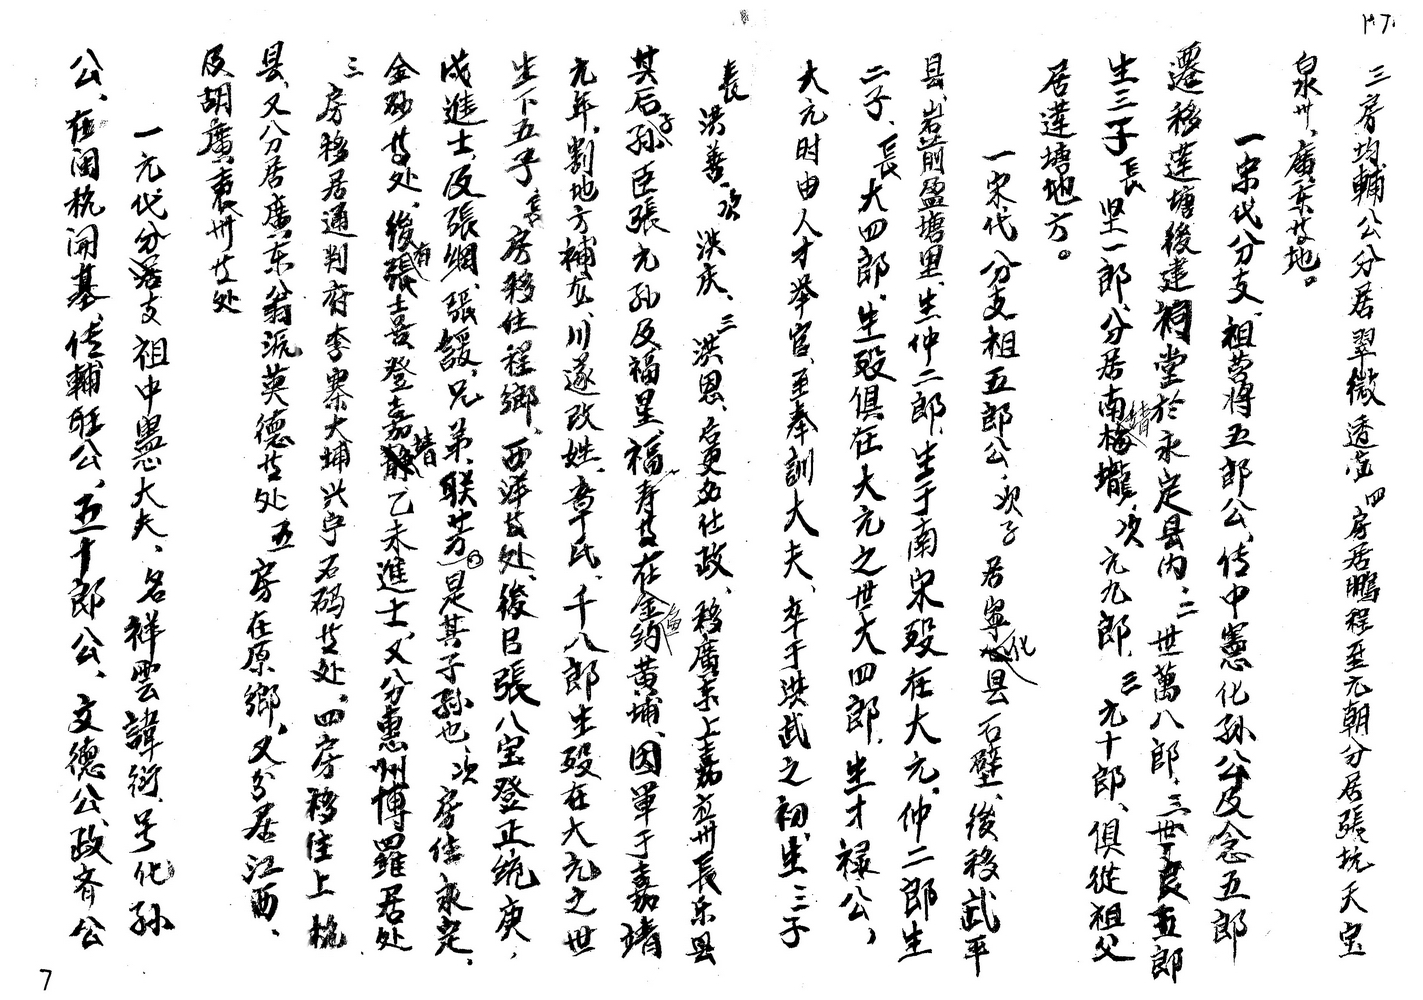 三房均輔公分居翠微透峦 四房居鵬程至元朝分居張坑天宝
泉卅、廣东芳地。
一宋代分支、祖蒙將五郎公、传中憲化孙公及念五郎
遷移莲塘後建祠堂於永定县内、二世萬八郎、三世良五郎
生三子 長坚一郎、分居南靖梅壠、次元九郎、三元十郎、俱從祖父
居莲塘地方。
一宋代分支祖五郎公、次子居寧化县石壁、後移武平
县、岩前盈塘里、生仲二郎、生于南宋殁在大元、仲二郎生
二子、長大四郎、生殁俱在大元之世大四郎、生才禄公、
大元时由人才举官、至奉訓大夫、卒于洪武之初、生三子
長洪善、次洪庆、三洪恩、后更为仕政、移廣东上嘉应卅長乐县
其后子孙臣張元孙及福星、福寿芳在金约黄埔、因軍于嘉靖
元年、割地方補应川遂改姓、章氏、千八郎生殁在大元之世
生下五子、長房移住程鄉、西洋芳处、後吕張八宝登正统庚、
戌進士、及張綱、張鑀、兄弟、联芳、是其子孫也、次房住永定、
金砂芳处、後有張喜登嘉靖乙未進士、又分惠州博羅居处
三房移居通判府李寨大埔兴宁石码芳处、四房移住上杭
县、又分居廣东翁沅英德芳处 五房在原鄉、又分居江西、
及胡廣袁卅芳处
一元代分支祖中愚大夫、名祥雲諱衍、号化孙
公、在闽杭闹基、传輔旺公、五十郎公、文德公、政齐公
7